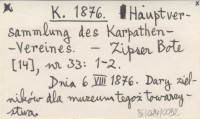 K. 1876. Hauptver-
sammlung des Karpathen-
-Vereines. - Zipser Bote
[14], nr 33: 1-2.
Dnia 6 VIII 1876. Dary ziel-
ników dla muzeum tegoż towarzy-
stwa.